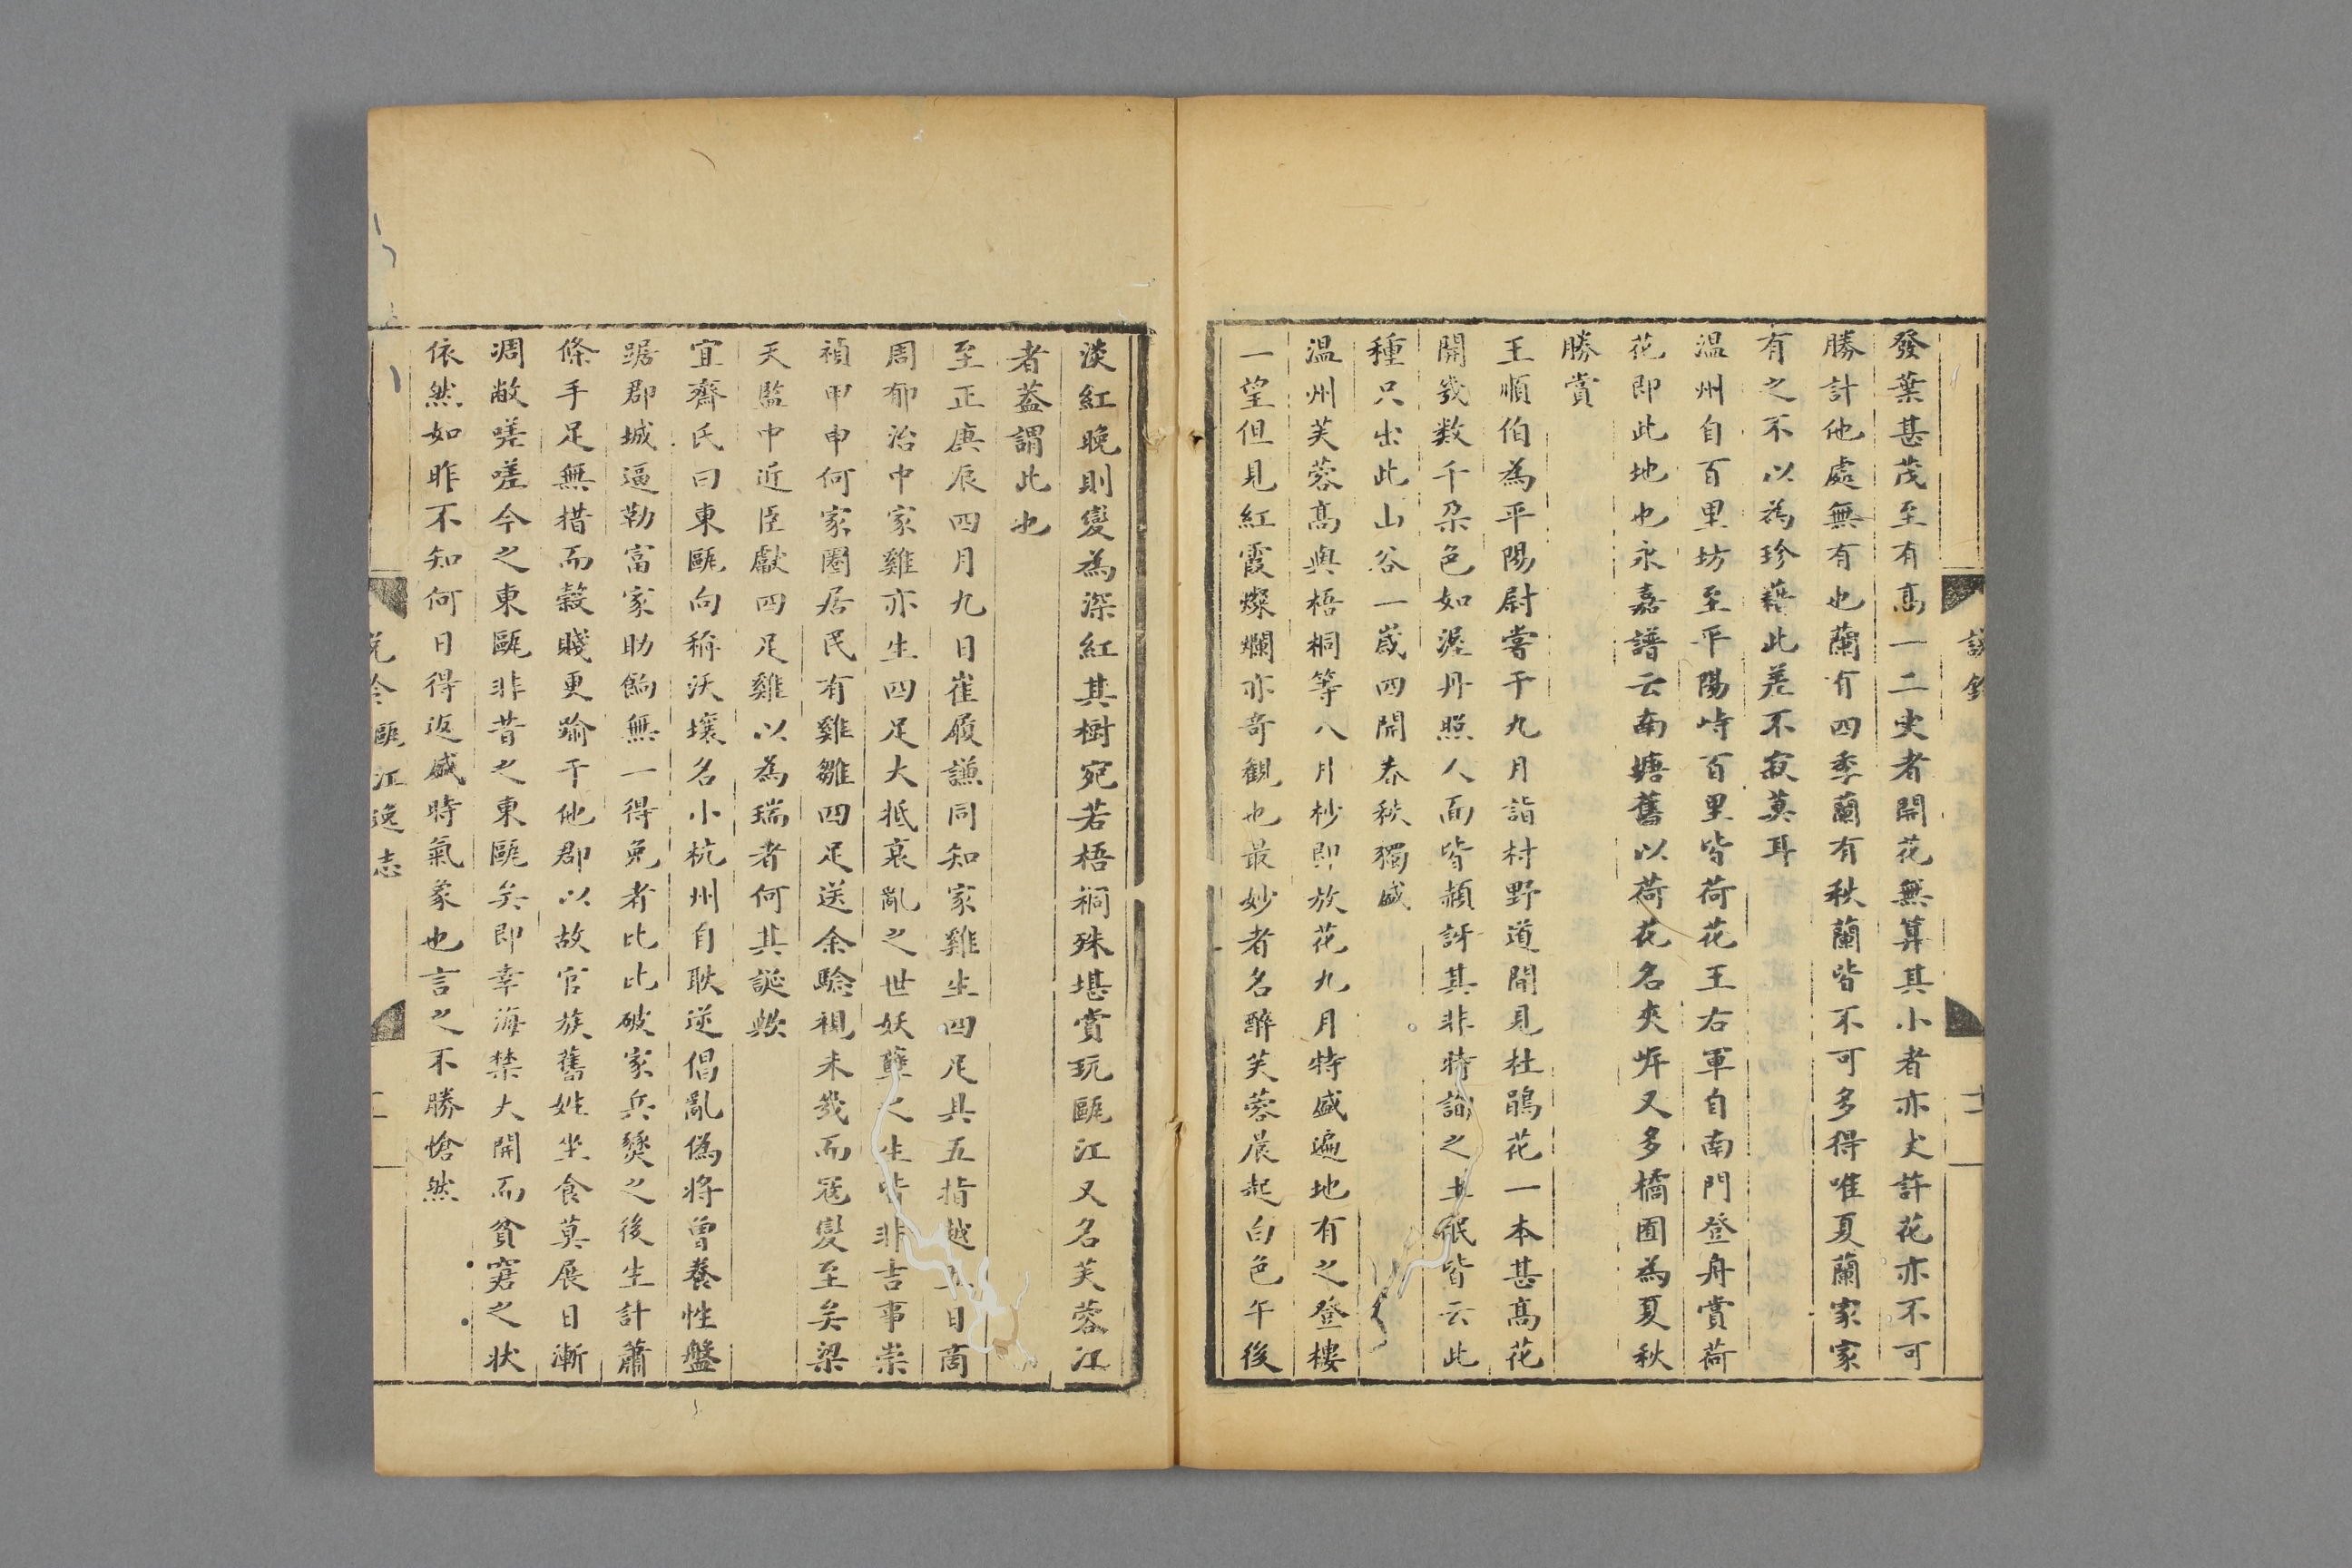 發葉甚茂至有髙一二丈者開花無算其小者亦丈許花亦不可
勝計他處無有也蘭有四季蘭有秋蘭皆不可多得唯夏蘭家家
有之不以為珍藉此差不寂莫耳
温州自百里坊至平陽峙百里皆荷花王右軍自南門登舟賞荷
花即此地也永嘉譜云南塘舊以荷花名夾岸又多橘囿為夏秋
勝賞
王順伯為平陽尉嘗于九月詣村野道間見杜鵑花一本甚髙花
開幾数千朶色如渥丹照人面皆頳訝其非時詢之土氓皆云此
種只出此山谷一嵗四開春秋獨盛
温州芙蓉髙與梧桐等八月杪即放花九月特盛遍地有之登樓
一望但見紅霞燦爛亦奇觀也最妙者名醉芙蓉晨起白色午後
淡紅晚則變為深紅其樹宛若梧桐殊堪賞玩甌江又名芙蓉江
者葢謂此也
至正庚辰四月九日崔履謙同知家雞生四足具五指越日商
周郁治中家雞亦生四足大抵衰亂之世妖孽之生皆非吉事崇
禎甲申何家圏居民有雞雛四足送余驗視未幾而冦變至矣梁
天監中近臣獻四足雞以為瑞者何其誕歟
宜齋氏曰東甌向稱沃壤名小杭州自耿逆倡亂偽將曾養性盤
踞郡城逼勒富家助餉無一得免者比比破家兵燹之後生計蕭
條手足無措而穀賤更踰于他郡以故官族舊姓坐食莫展日漸
凋敝嗟嗟今之東甌非昔之東甌矣即幸海禁大開而貧窘之狀
依然如昨不知何日得返盛時氣象也言之不勝愴然
甌江逸志